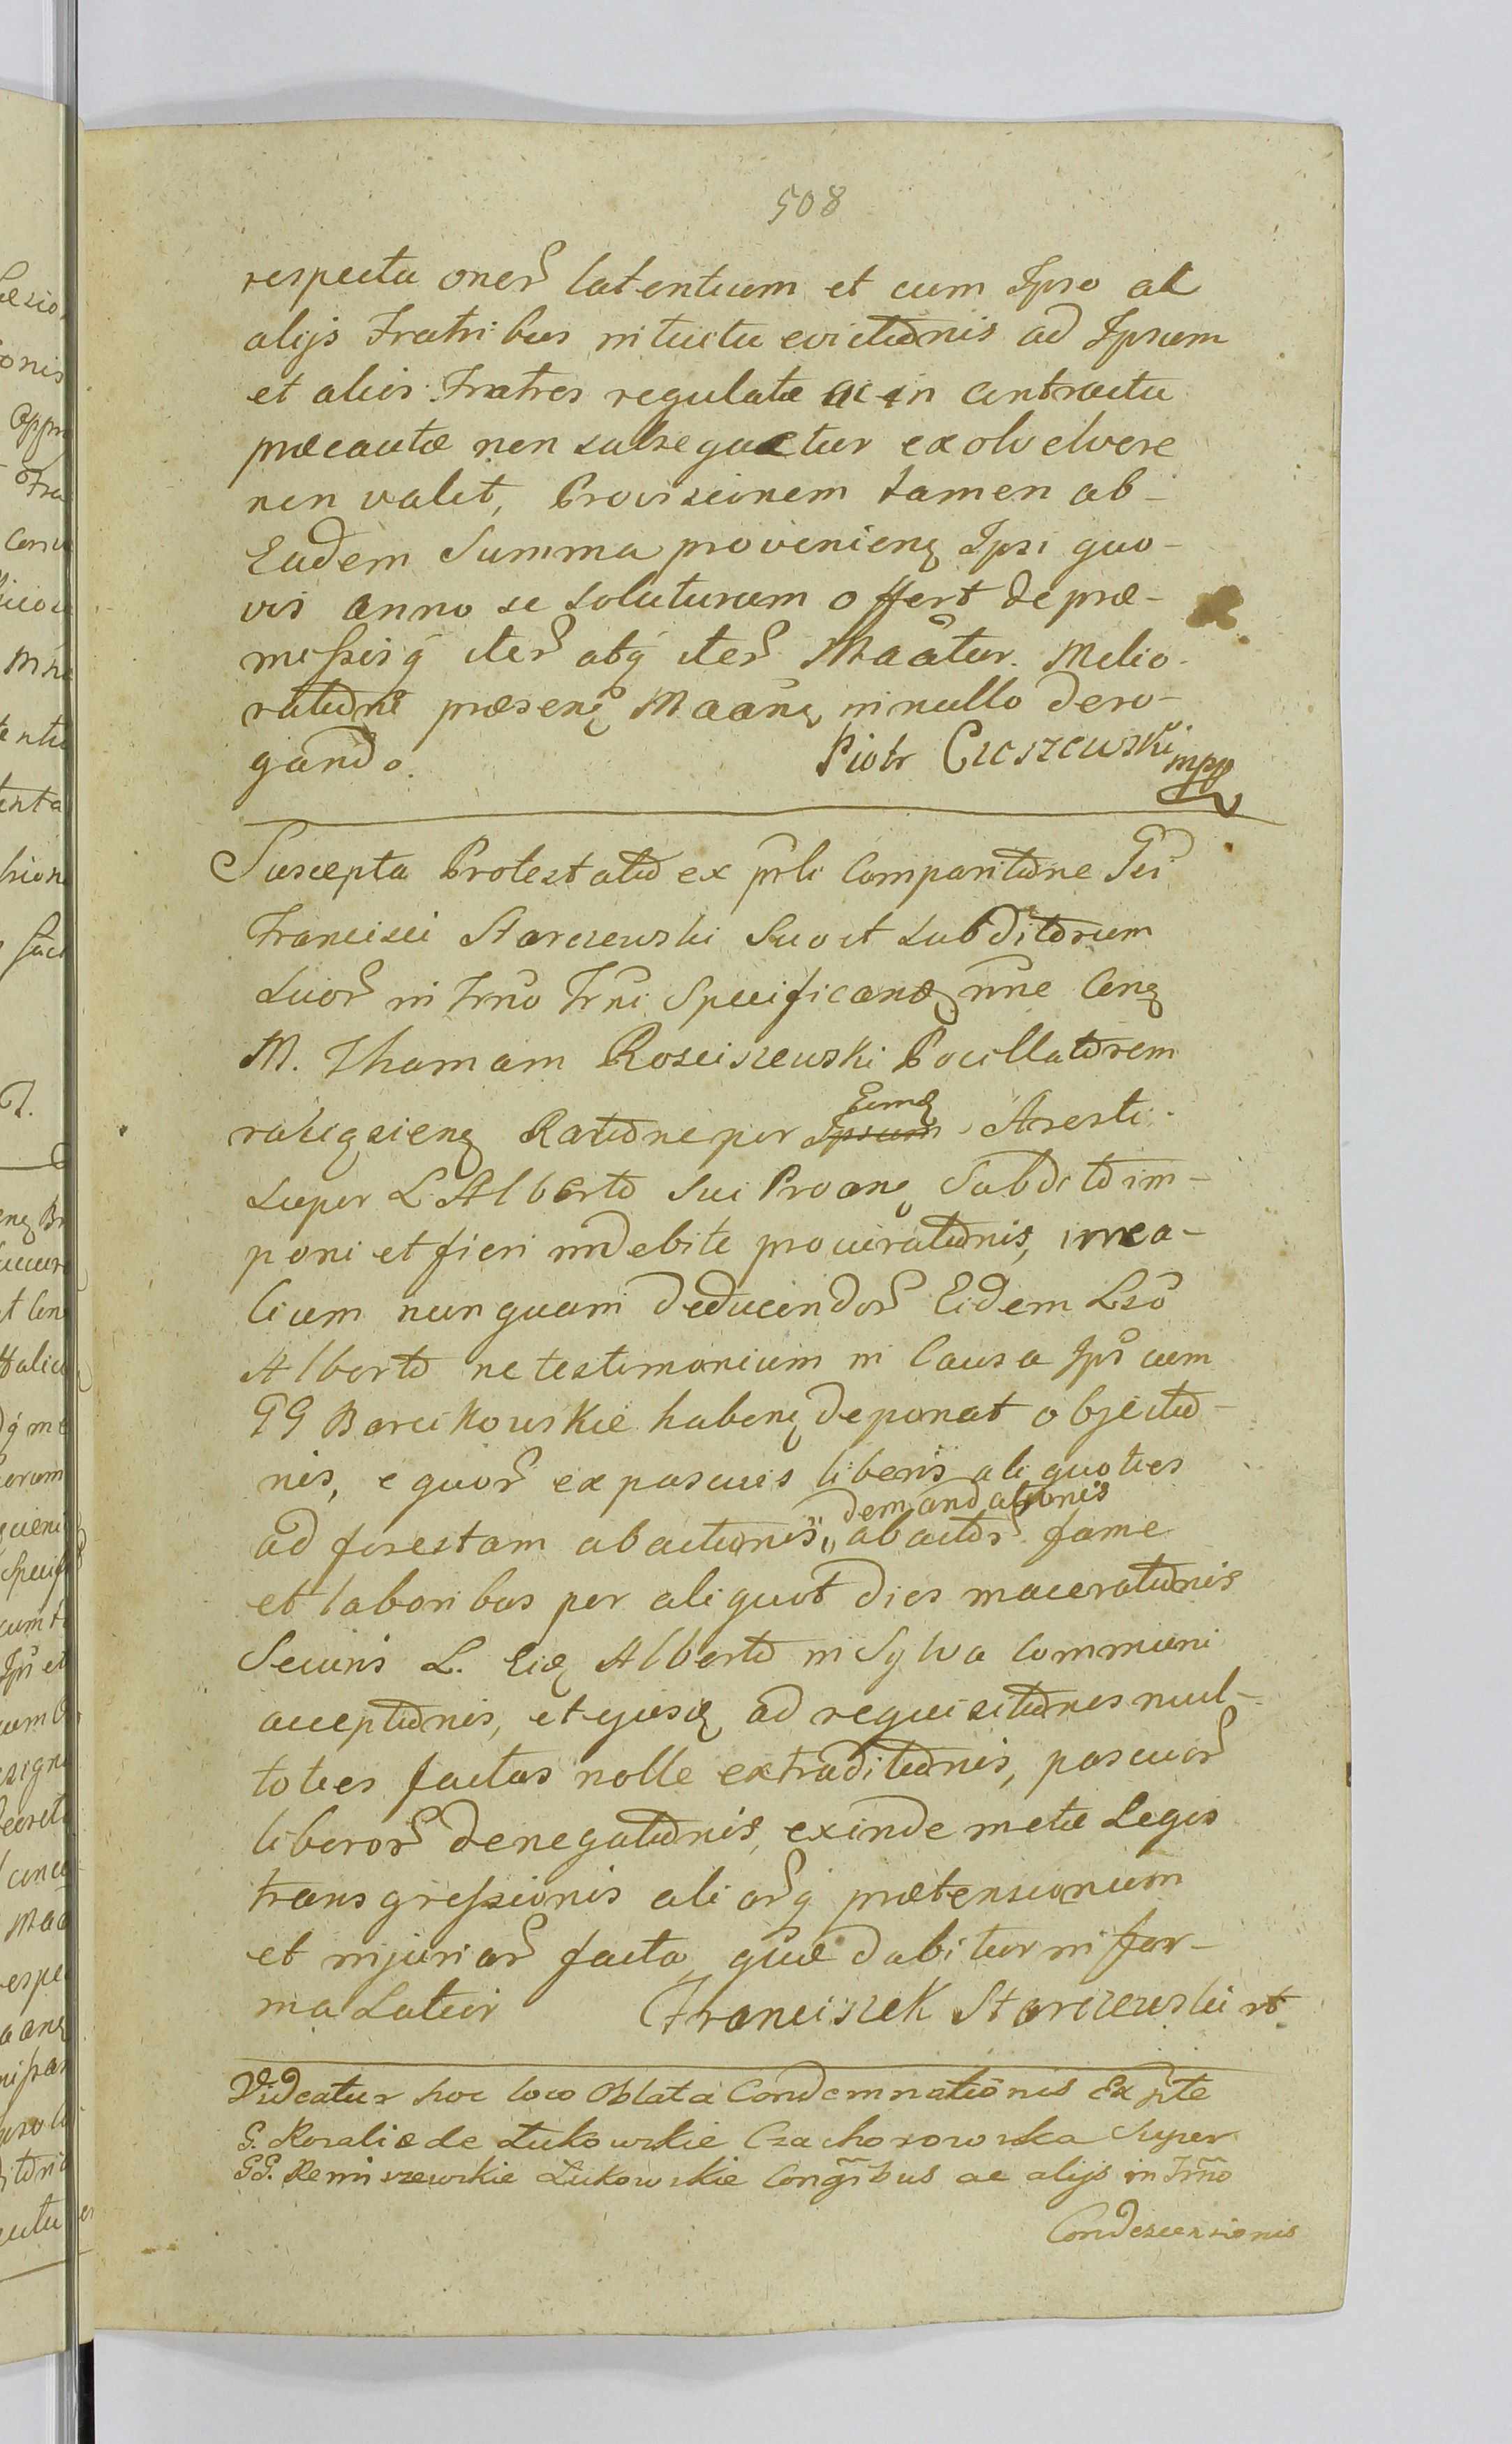 508
respectu oner latentium et cum Ipso ac
alijs Fratribus intuitu evictionis ad Ipsum
et alios Fratres regulatæ ac in contractu
præcautæ non subsequetur exolvelvere
non valet, Provisionem tamen ab-
Eadem Summa provenienę Ipsi quo-
vis anno se soluturum offert de præ-
missisq iter atq iter Maatur. Melio-
rationi præsenę Maanę in nullo dero-
gando. Piotr Cieszewski mpp
Suscepta Protestatio ex prli Comparitione Gsi
Francisci Starczewski Suo et Subditorum
Suor in Frno Frni Specificandę nne Conę
M. Thomam Rosciszewski Pocillatorem
ratiqzienę Ratione per Ipsum Eundę Aresti
super L. Alberto sui Proanę Subdito im-
poni et fieri indebite procurationis, irrea-
lium nunquam deducendor Eidem Lso
Alberto ne testimonium in Causa Ips cum
GG Barcikowskie habenę deponat objectio-
nis, equor ex pascuis liberis aliquoties
ad forestam abactionis, demandationis abactor fame
et laboribus per aliquot dies macerationis
Securis L. Eidę Alberto in Sylva Communi
acceptionis, et ejusdę ad requisitiones mul-
toties factas nolle extraditionis, pascuor
liberor denegationis, exinde metu Legis
transgressionis aliorq prætensionum
et injuriar facta, quæ dabitur in for-
ma Latiori Franciszek Starczewski rt
Videatur hoc loco Oblata Condemnationis Ex pte
G. Rosaliæ de Łukowskie Czachorowska super
GG. Remiszewskie Łukowskie Congibus ac alijs in Frno
Condescensionis